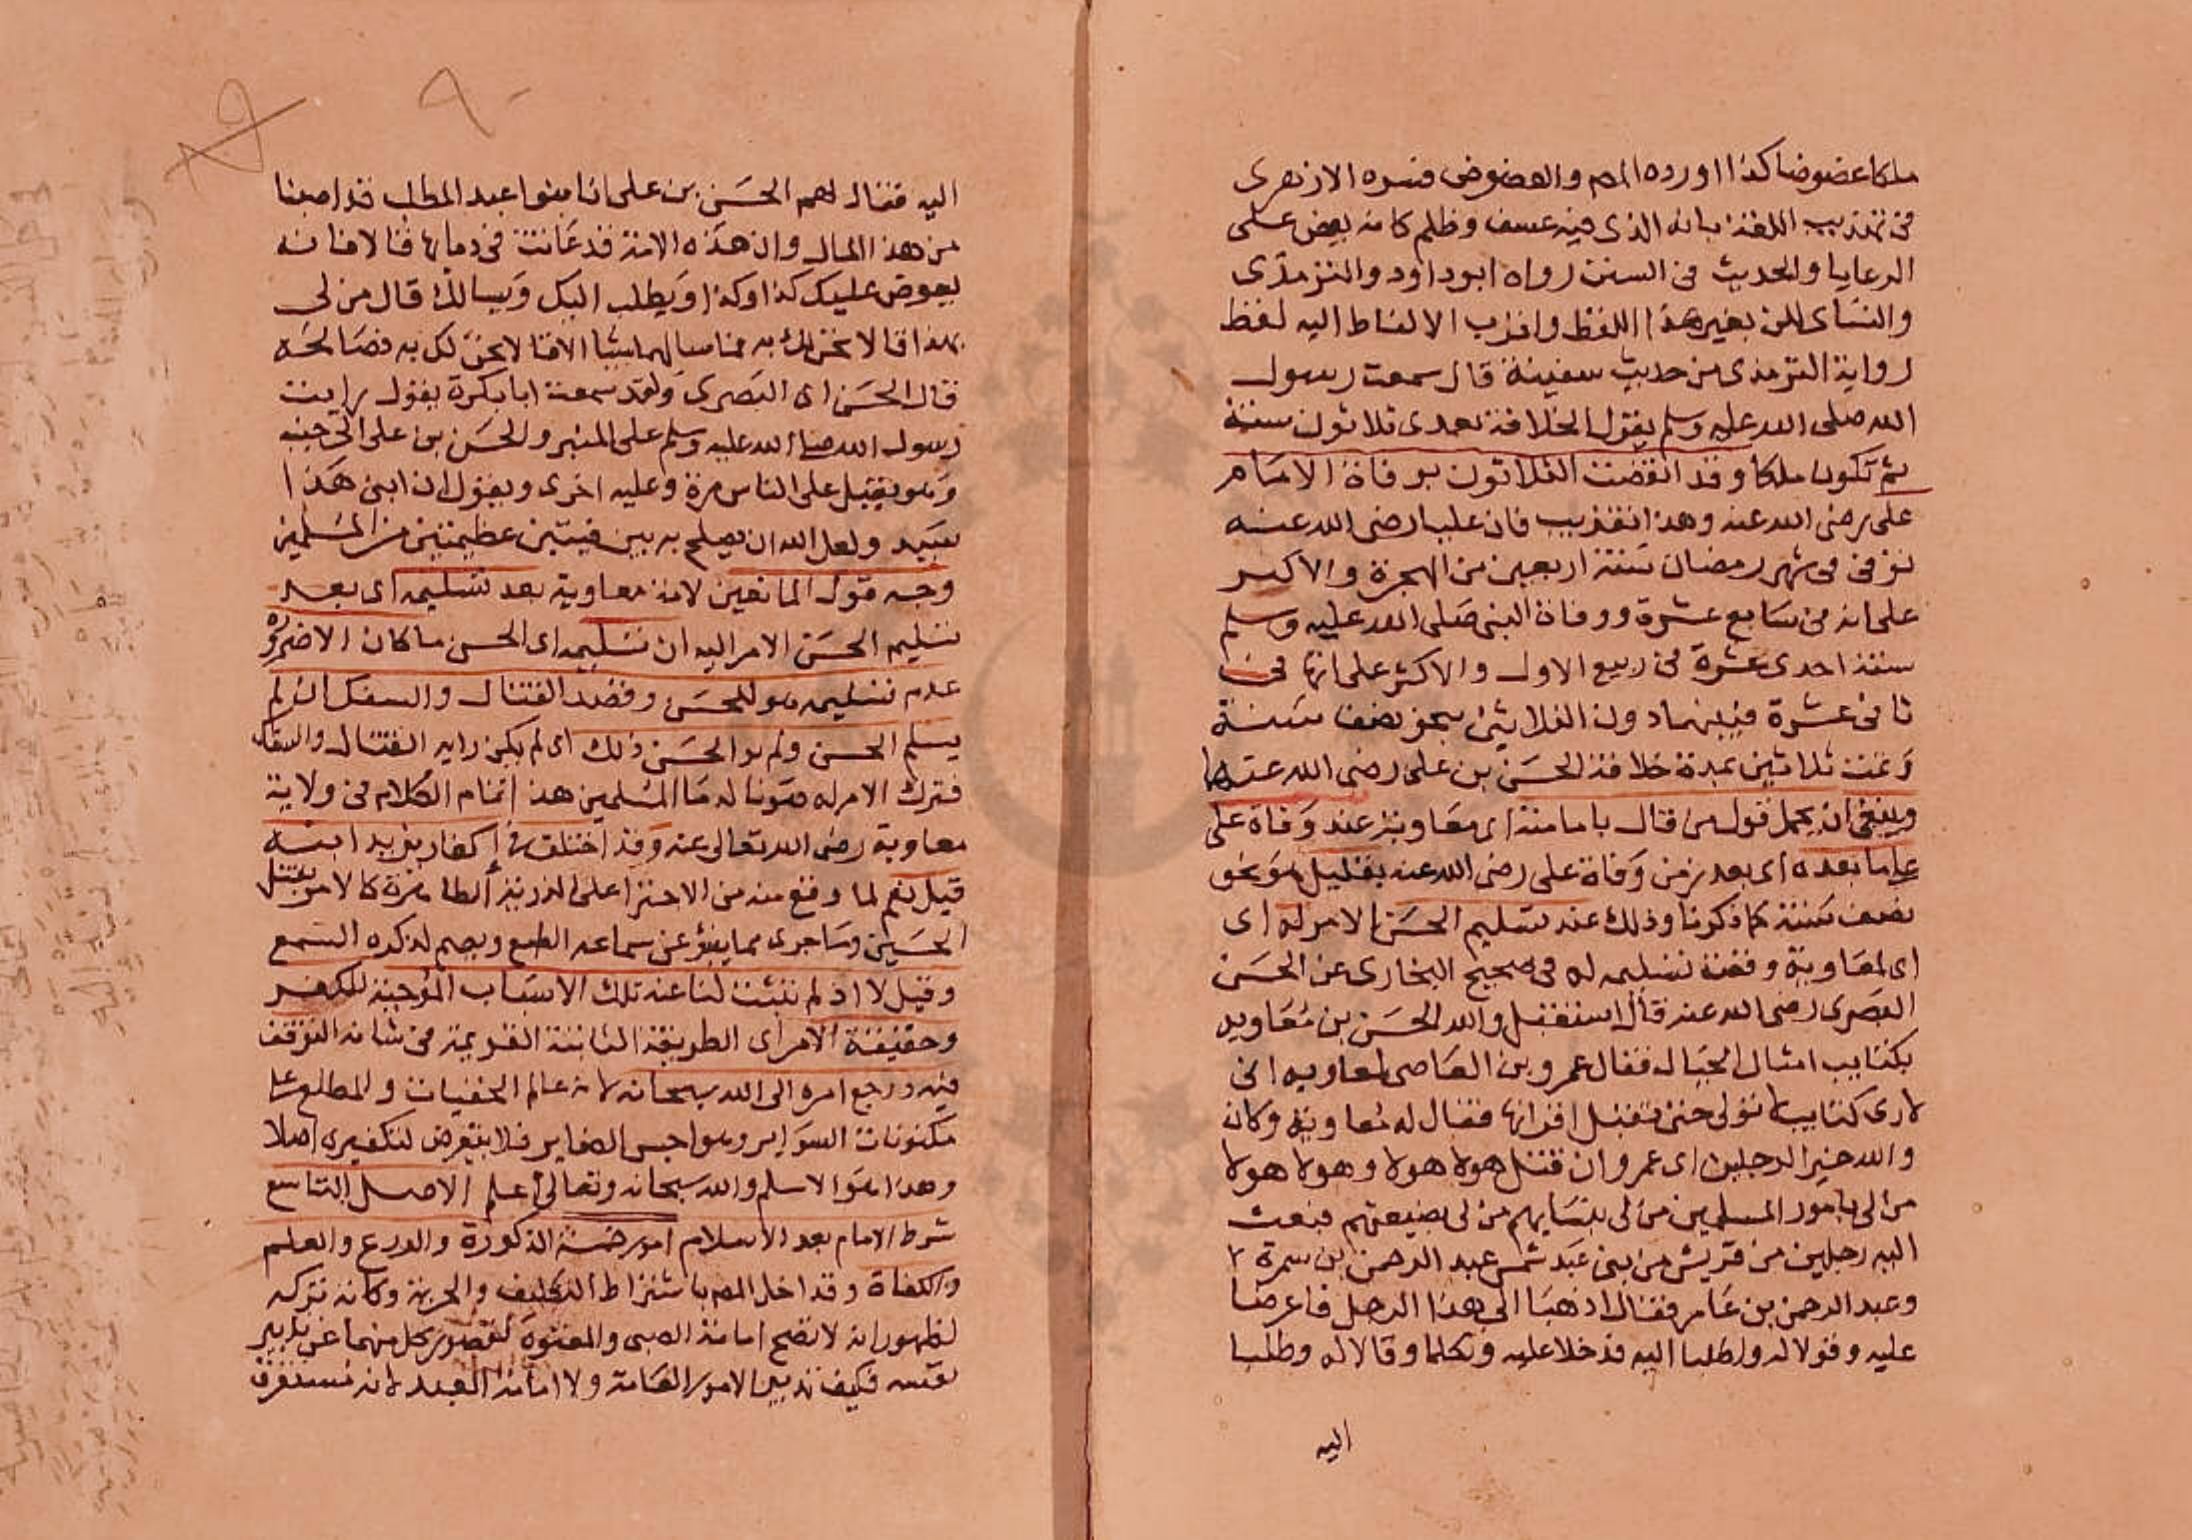 ملكا عضوضا كذا اورده المص والعضوض فسره الازهرى
فى تهذيب اللغة بانه الذى فيه عسف وظلم كانه يعض على
الرعايا والحديث فى السنن رواه ابوداود والترمذى
والنساى لكن بغير هذا اللفظ واقرب الالفاظ اليه لفظ
رواية الترمذى من حديث سفينة قال سمعت رسول
الله صلى الله عليه وسلم يقول الخلافة بعدى ثلاثون سنة
ثم تكون ملكا وقد انقضت الثلاثون بوفاة الامام
على رضى الله عنه وهذا تقريب فان عليا رضى الله عنه
توفى فى شهر رمضان سنة اربعين من الهجرة والاكثر
على انه فى سابع عشرة ووفاة النبى صلى الله عليه وسلم
سنة احدى عشرة فى ربيع الاول والاكثر على انها فى
ثانى عشرة فبينهما دون الثلاثين بنحو نصف سنة
وتمت ثلاثين بمدة خلافة الحسن بن على رضى الله عنهما
وينبغى ان يحمل قول من قال بامامته اى معاوية عند وفاة على
على ما بعده اى بعد زمن وفاة على رضى الله عنه بقليل هو نحو
نصف سنة كما ذكرنا وذلك عند تسليم الحسن الامر له اى
اى لمعاوية وقصة تسليمه له فى صحيح البخارى عن الحسن
البصرى رضى الله عنه قال استقبل والله الحسن بن معاويه
بكتايب امثال الجبال فقال عمرو بن العاصى لمعاويه انى
لارى كتايب لا تولى حتى تقتل اقرانها فقال له معاوية وكان
والله خير الرجلين اى عمرو ان قتل هولا هولا وهولا هولا
من لى بامور المسلمين من لى بنسايهم من لى بضيعتهم فبعث
اليه رجلين من قريش من بنى عبد شمس عبد الرحمن بن سمرة
وعبد الرحمن بن عامر فقال اذهبا الى هذا الرجل فاعرضا
عليه وقولا له واطلبا اليه فدخلا عليه وتكلما وقالا له وطلبا
اليه
٩٠
اليه فقال لهم الحسن بن على انا بنوا عبد المطلب قد اصبنا
من هذا المال وان هذه الامة قد عاثت فى دمايها قالا فانه
يعرض عليك كذا وكذا ويطلب اليك ويسالك قال من لى
بهذا قالا نحن لك به فما سالهما شيا الا قالا نحن لك به فصالحه
قال الحسن اى البصرى ولقد سمعت ابا بكرة يقول رايت
رسول الله صلى الله عليه وسلم على المنبر والحسن بن على الى جنبه
وهو يقبل على الناس مرة وعليه اخرى ويقول ان ابنى هذا
سيد ولعل الله ان يصلح به بين فيتين عظيمتين من المسلمين
وجه قول المانعين لامامة معاوية بعد تسليمه اى بعد
تسليم الحسن الامر اليه ان تسليمه اى الحسن ما كان الا ضرورة
عدم تسليمه هو للحسن وقصد القتال والسفك ان لم
يسلم الحسن ولم ير الحسن ذلك اى لم يكن رايه القتال والسفك
فترك الامر له صونا لدما المسلمين هذا تمام الكلام فى ولاية
معاوية رضى الله تعالى عنه وقد اختلف فى إكفار يزيد ابنه
قيل نعم لما وقع منه من الاجترا على الذرية الطاهرة كالامر بقتل
الحسين وما جرى مما ينبو عن سماعه الطبع ويصم لذكره السمع
وقيل لا اذ لم يثبت لنا عنه تلك الاسباب الموجبة للكفر
وحقيقة الامر اى الطريقة الثابتة القويمة فى شانه التوقف
فيه ورجع امره الى الله سبحانه لانه عالم الخفيات والمطلع على
مكنونات السراير وهواجس الضماير فلا يتعرض لتكفيره اصلا
وهذا هو الاسلم والله سبحانه وتعالى أعلم الاصل التاسع
شرط الامام بعد الاسلام امور خمسة الذكورة والورع والعلم
والكفاة وقد اخل المص باشتراط التكليف والحرية وكانه تركه
لظهور انه لا تصح امامة الصبى والمعتوه لقصور كل منهما عن تدبير
نفسه فكيف تدبير الامور العامة ولا امامة العبد لانه مستغرق